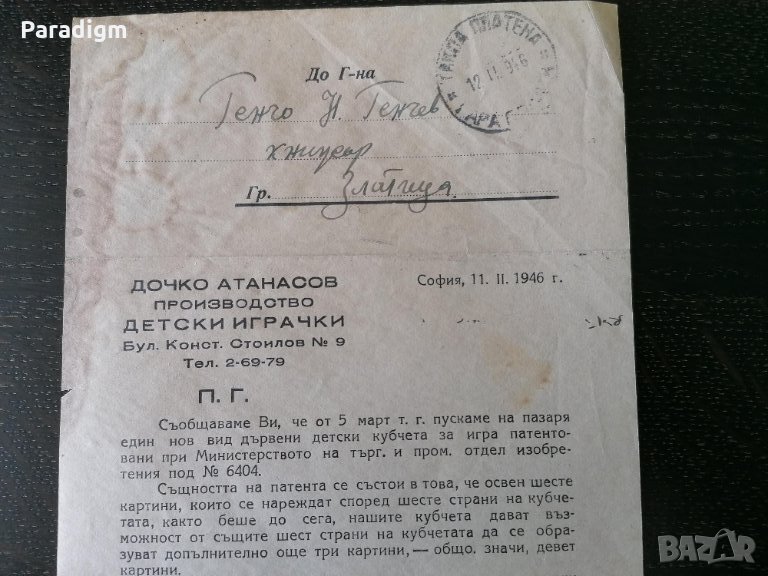 Paradigm
ТАКСА ПЛАТЕНА
12.II.946
До Г-на
Генчо Н. Генчев
книжар
Гр. Златица.
ДОЧКО АТАНАСОВ
ПРОИЗВОДСТВО
ДЕТСКИ ИГРАЧКИ
Бул. Конст. Стоилов № 9
Тел. 2-69-79
София, 11. II. 1946 г.
П. Г.
Съобщаваме Ви, че от 5 март т. г. пускаме на пазаря
един нов вид дървени детски кубчета за игра патенто-
вани при Министерството на търг. и пром. отдел изобре-
тения под № 6404.
Същността на патента се състои в това, че освен шесте
картини, които се нареждат според шесте страни на кубче-
тата, както беше до сега, нашите кубчета дават въз-
можност от същите шест страни на кубчетата да се обра-
зуват допълнително още три картини,— общо. значи, девет
картини.
BAZAR